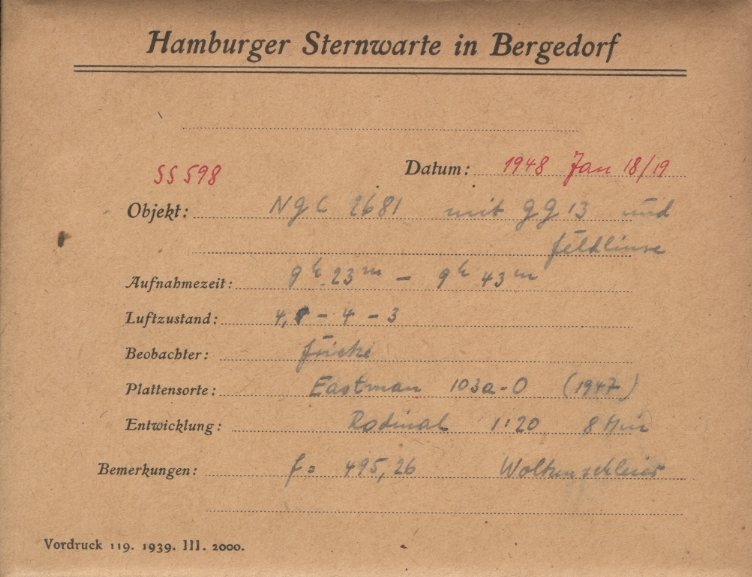 Hamburger Sternwarte in Bergedorf
SS 598 Datum: 1948 Jan 18/19
Objekt: NGC 2681 mit GG 13 und
Feldlinse
Aufnahmezeit: 9h 23m - 9h 43m
Luftzustand: 4, - 4 - 3
Beobachter:
Plattensorte: Eastman 103a-O (1947)
Entwicklung: Rodinal 1:20 8 Min
Bemerkungen: f = 495,26 Wolkenschleier
Vordruck 119. 1939. III. 2000.